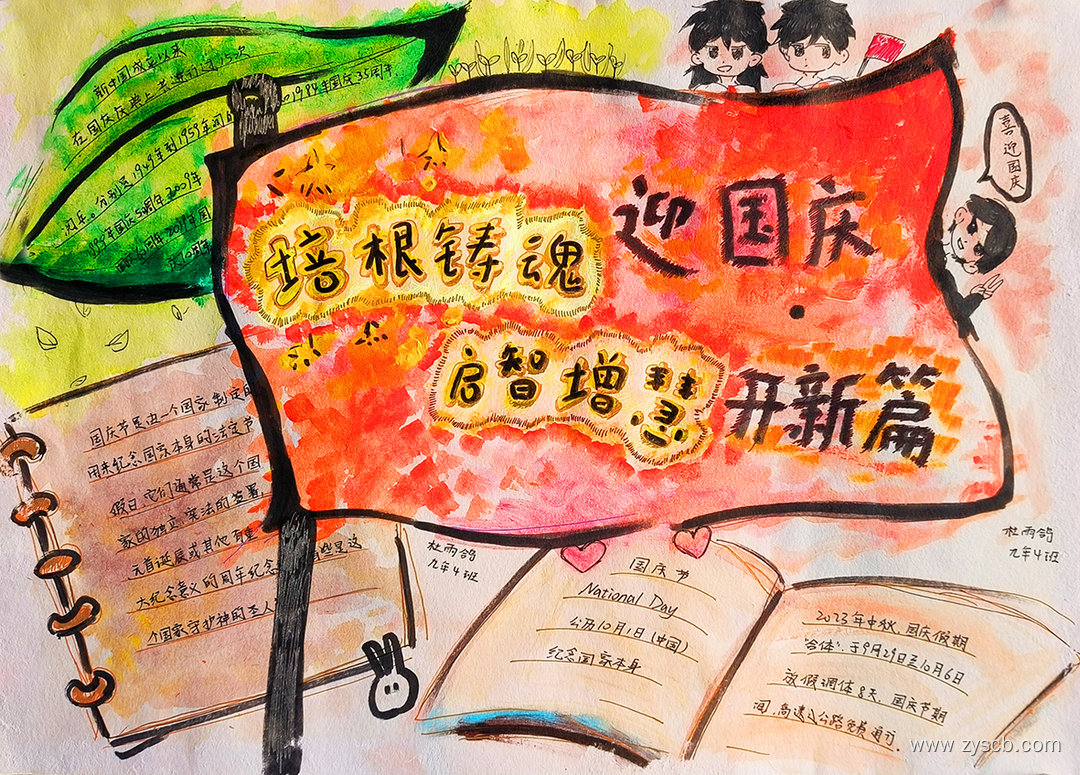 新中国成立以来
在国庆庆典上共进行过15次
分别是1949年到1959年间的
1984年国庆35周年
1999年国庆50周年2009年
国庆60周年2019年国
喜迎国庆
迎国庆
培根铸魂
启智增慧
开新篇
国庆节是由一个国家制定的
用来纪念国家本身的法定节
假日,它们通常是这个国
家的独立、宪法的签署、
元首诞辰或其他有重
大纪念意义的周年纪念
些是这
个国家守护神的圣人
杜雨鸽
九年4班
国庆节
National Day
公历10月1日(中国)
纪念国家本身
杜雨鸽
九年4班
2023年中秋、国庆假期
"合体",于9月29日至10月6日
放假调休8天,国庆节期
间,高速公路免费通行.
www.zyscb.com